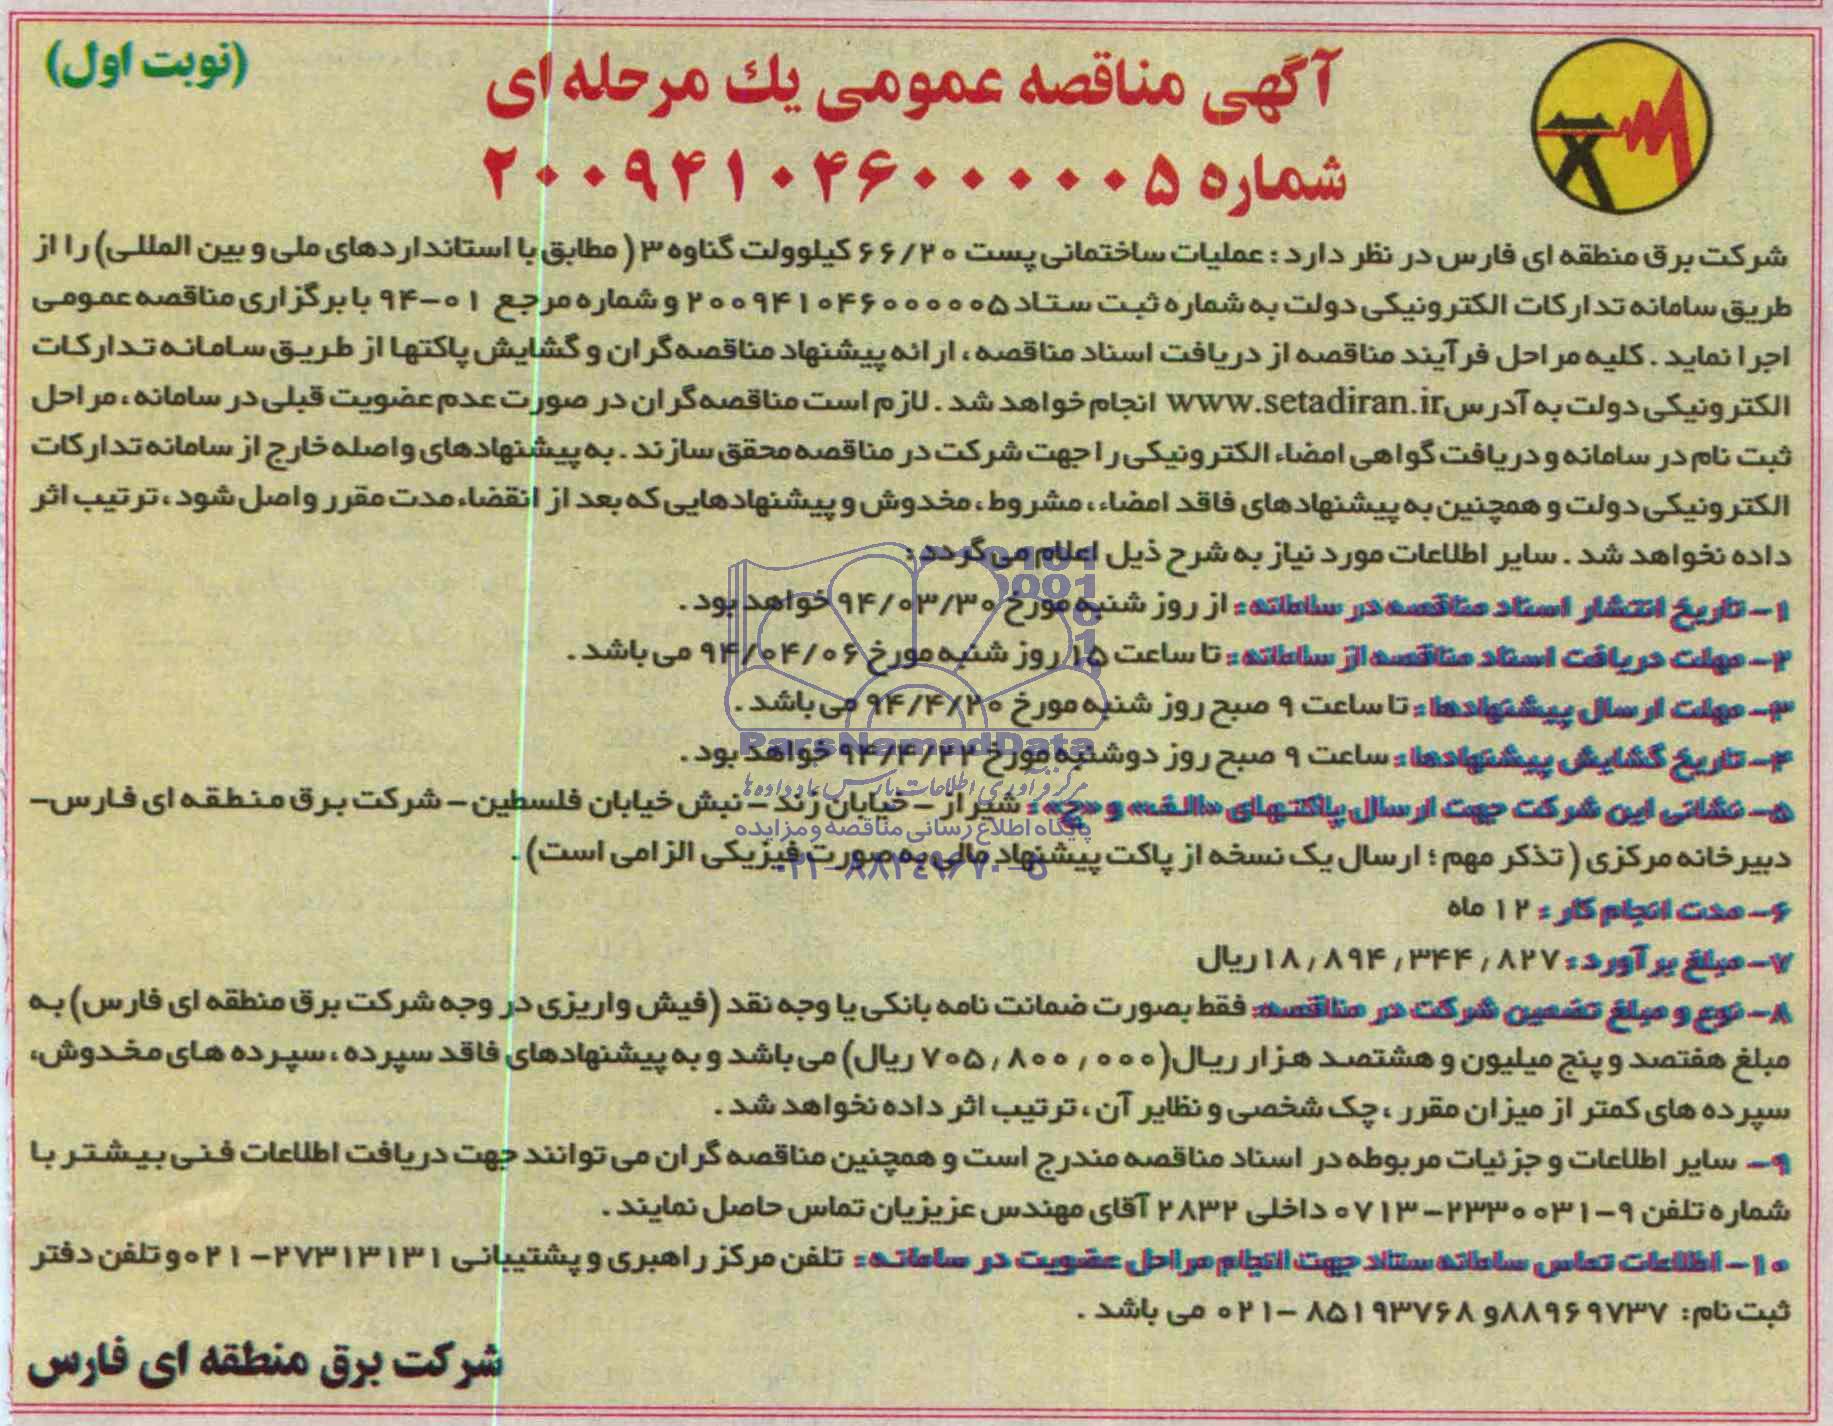 (نوبت اول)
آگهی مناقصه عمومی یك مرحله ای
شماره ۲۰۰۹۴۱۰۴۶۰۰۰۰۰۵
شرکت برق منطقه ای فارس در نظر دارد : عملیات ساختمانی پست ۶۶/۲۰ کیلوولت گناوه ۳ ( مطابق با استانداردهای ملی و بین المللی) را از
طریق سامانه تدارکات الکترونیکی دولت به شماره ثبت ستاد ۲۰۰۹۴۱۰۴۶۰۰۰۰۰۵ و شماره مرجع ۰۱-۹۴ با برگزاری مناقصه عمومی
اجرا نماید . کلیه مراحل فرآیند مناقصه از دریافت اسناد مناقصه ، ارائه پیشنهاد مناقصه‌گران و گشایش پاکتها از طریق سامانه تدارکات
الکترونیکی دولت به آدرس www.setadiran.ir انجام خواهد شد . لازم است مناقصه‌گران در صورت عدم عضویت قبلی در سامانه ، مراحل
ثبت نام در سامانه و دریافت گواهی امضاء الکترونیکی را جهت شرکت در مناقصه محقق سازند . به پیشنهادهای واصله خارج از سامانه تدارکات
الکترونیکی دولت و همچنین به پیشنهادهای فاقد امضاء ، مشروط ، مخدوش و پیشنهادهایی که بعد از انقضاء مدت مقرر واصل شود ، ترتیب اثر
داده نخواهد شد . سایر اطلاعات مورد نیاز به شرح ذیل اعلام می‌گردد :
۱- تاریخ انتشار اسناد مناقصه در سامانه : از روز شنبه مورخ ۹۴/۰۳/۳۰ خواهد بود .
۲- مهلت دریافت اسناد مناقصه از سامانه : تا ساعت ۱۵ روز شنبه مورخ ۹۴/۰۴/۰۶ می باشد .
۳- مهلت ارسال پیشنهادها : تا ساعت ۹ صبح روز شنبه مورخ ۹۴/۴/۲۰ می باشد .
۴- تاریخ گشایش پیشنهادها : ساعت ۹ صبح روز دوشنبه مورخ ۹۴/۴/۲۲ خواهد بود .
۵- نشانی این شرکت جهت ارسال پاکتهای «الف» و «ج» : شیراز - خیابان زند - نبش خیابان فلسطین - شرکت برق منطقه ای فارس -
دبیرخانه مرکزی ( تذکر مهم ؛ ارسال یک نسخه از پاکت پیشنهاد مالی به صورت فیزیکی الزامی است) .
۶- مدت انجام کار : ۱۲ ماه
۷- مبلغ برآورد : ۱۸٫۸۹۴٫۳۴۴٫۸۲۷ ریال
۸- نوع و مبلغ تضمین شرکت در مناقصه: فقط بصورت ضمانت نامه بانکی یا وجه نقد (فیش واریزی در وجه شرکت برق منطقه ای فارس) به
مبلغ هفتصد و پنج میلیون و هشتصد هزار ریال(۷۰۵٫۸۰۰٫۰۰۰ ریال) می باشد و به پیشنهادهای فاقد سپرده ، سپرده های مخدوش،
سپرده های کمتر از میزان مقرر ، چک شخصی و نظایر آن ، ترتیب اثر داده نخواهد شد .
۹- سایر اطلاعات و جزئیات مربوطه در اسناد مناقصه مندرج است و همچنین مناقصه گران می توانند جهت دریافت اطلاعات فنی بیشتر با
شماره تلفن ۹-۲۳۳۰۰۳۱-۰۷۱۳ داخلی ۲۸۳۲ آقای مهندس عزیزیان تماس حاصل نمایند .
۱۰- اطلاعات تماس سامانه ستاد جهت انجام مراحل عضویت در سامانه : تلفن مرکز راهبری و پشتیبانی ۲۷۳۱۳۱۳۱-۰۲۱ و تلفن دفتر
ثبت نام: ۸۸۹۶۹۷۳۷ و ۸۵۱۹۳۷۶۸ -۰۲۱ می باشد .
شرکت برق منطقه ای فارس
ParsNamadData
مرکز فرآوری اطلاعات پارس نماد داده ها
پایگاه اطلاع رسانی مناقصه و مزایده
۰۲۱-۸۸۳۴۹۶۷۰-۵